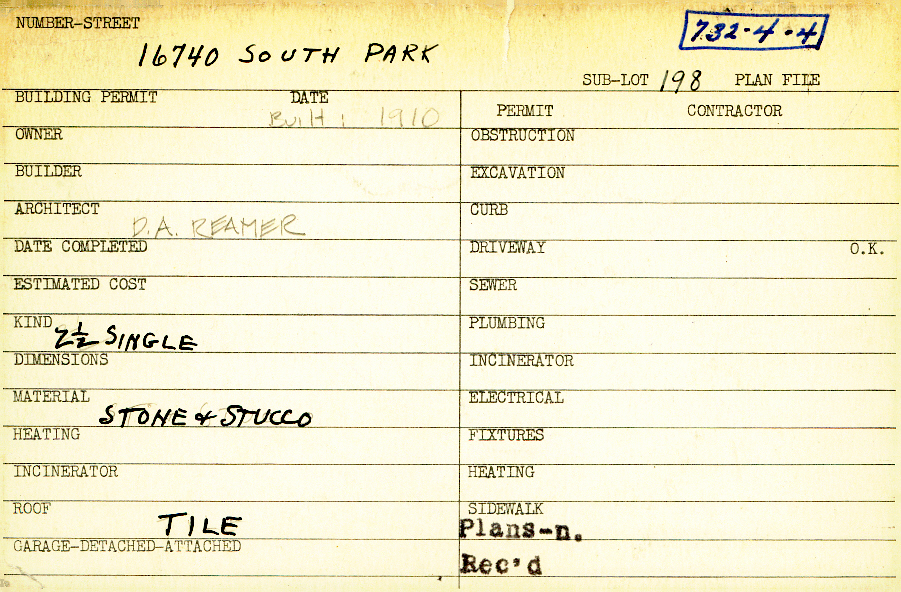 NUMBER-STREET
16740 SOUTH PARK
732-4-4
SUB-LOT 198 PLAN FILE
BUILDING PERMIT DATE
Built: 1910
PERMIT CONTRACTOR
OWNER
OBSTRUCTION
BUILDER
EXCAVATION
ARCHITECT
D.A. REAMER
CURB
DATE COMPLETED
DRIVEWAY O.K.
ESTIMATED COST
SEWER
KIND
2½ SINGLE
PLUMBING
DIMENSIONS
INCINERATOR
MATERIAL
STONE & STUCCO
ELECTRICAL
HEATING
FIXTURES
INCINERATOR
HEATING
ROOF
TILE
SIDEWALK
Plans-n.
GARAGE-DETACHED-ATTACHED
Rec'd